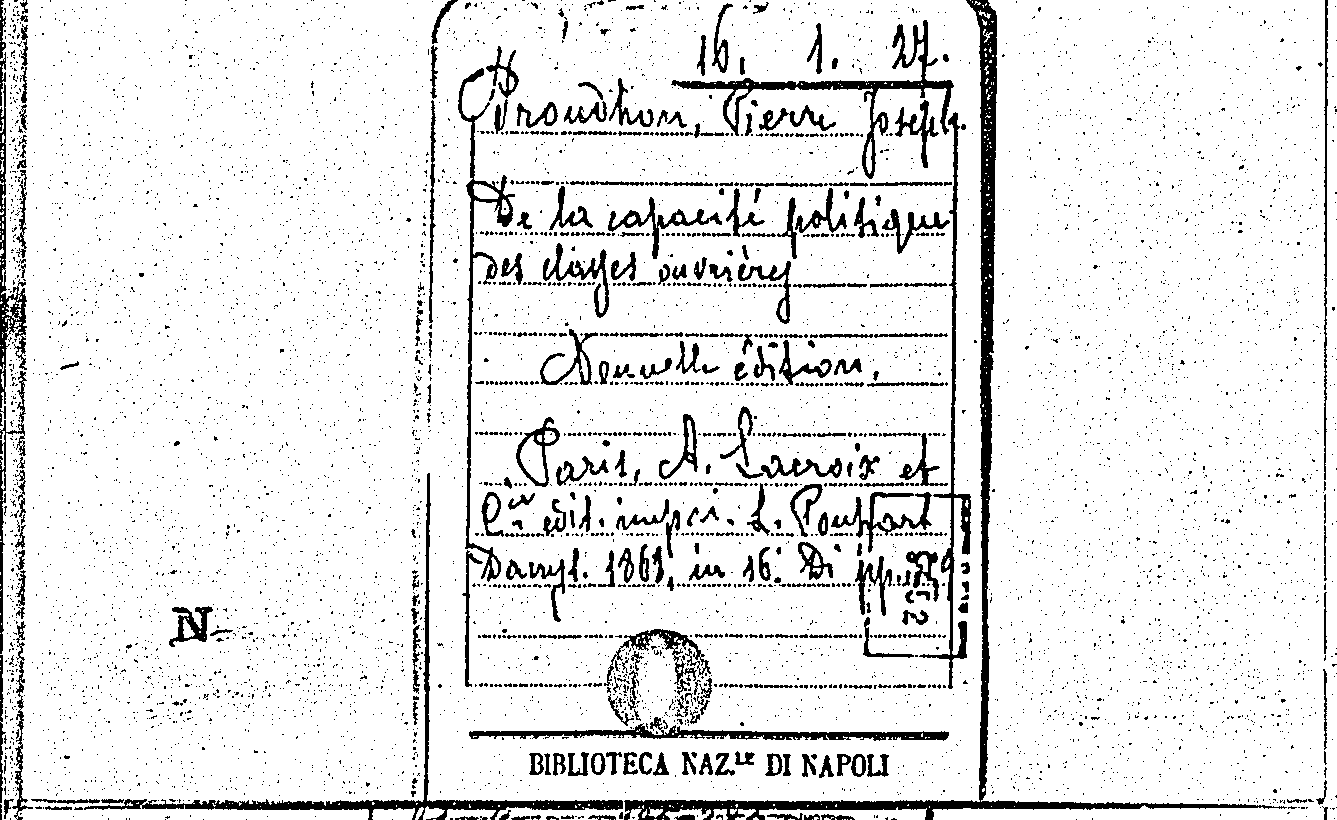 16. 1. 27.
Proudhon, Pierre Joseph.
De la capacité politique
des classes ouvrières
Nouvelle édition.
Paris, A. Lacroix et
C.ie édit. impri. L. Poupart
Davyl. 1868, in 16. Di pp.
N
BIBLIOTECA NAZ.LE DI NAPOLI